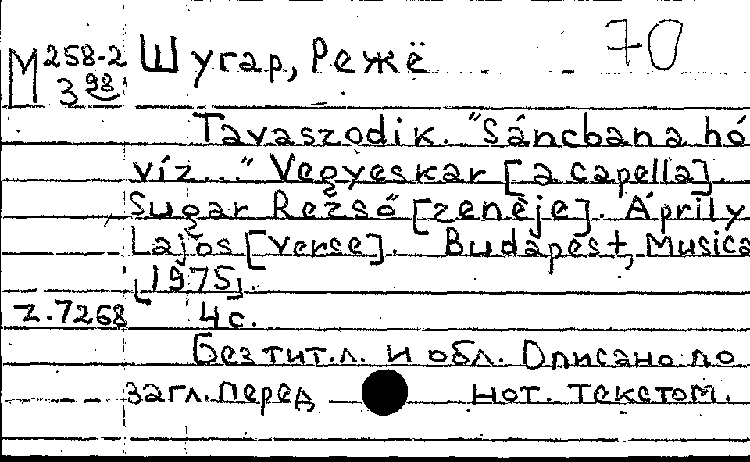 М 258-2 Шугар, Режё 70
3 98
Tavaszodik. "Sáncban a hó
víz..." Vegyeskar [a capella].
Sugár Rezső [zenéje]. Áprily
Lajos [verse]. Budapest, Musica
[1975].
Z.7268 4 с.
Без тит.л. и обл. Описано по
загл. перед нот. текстом.